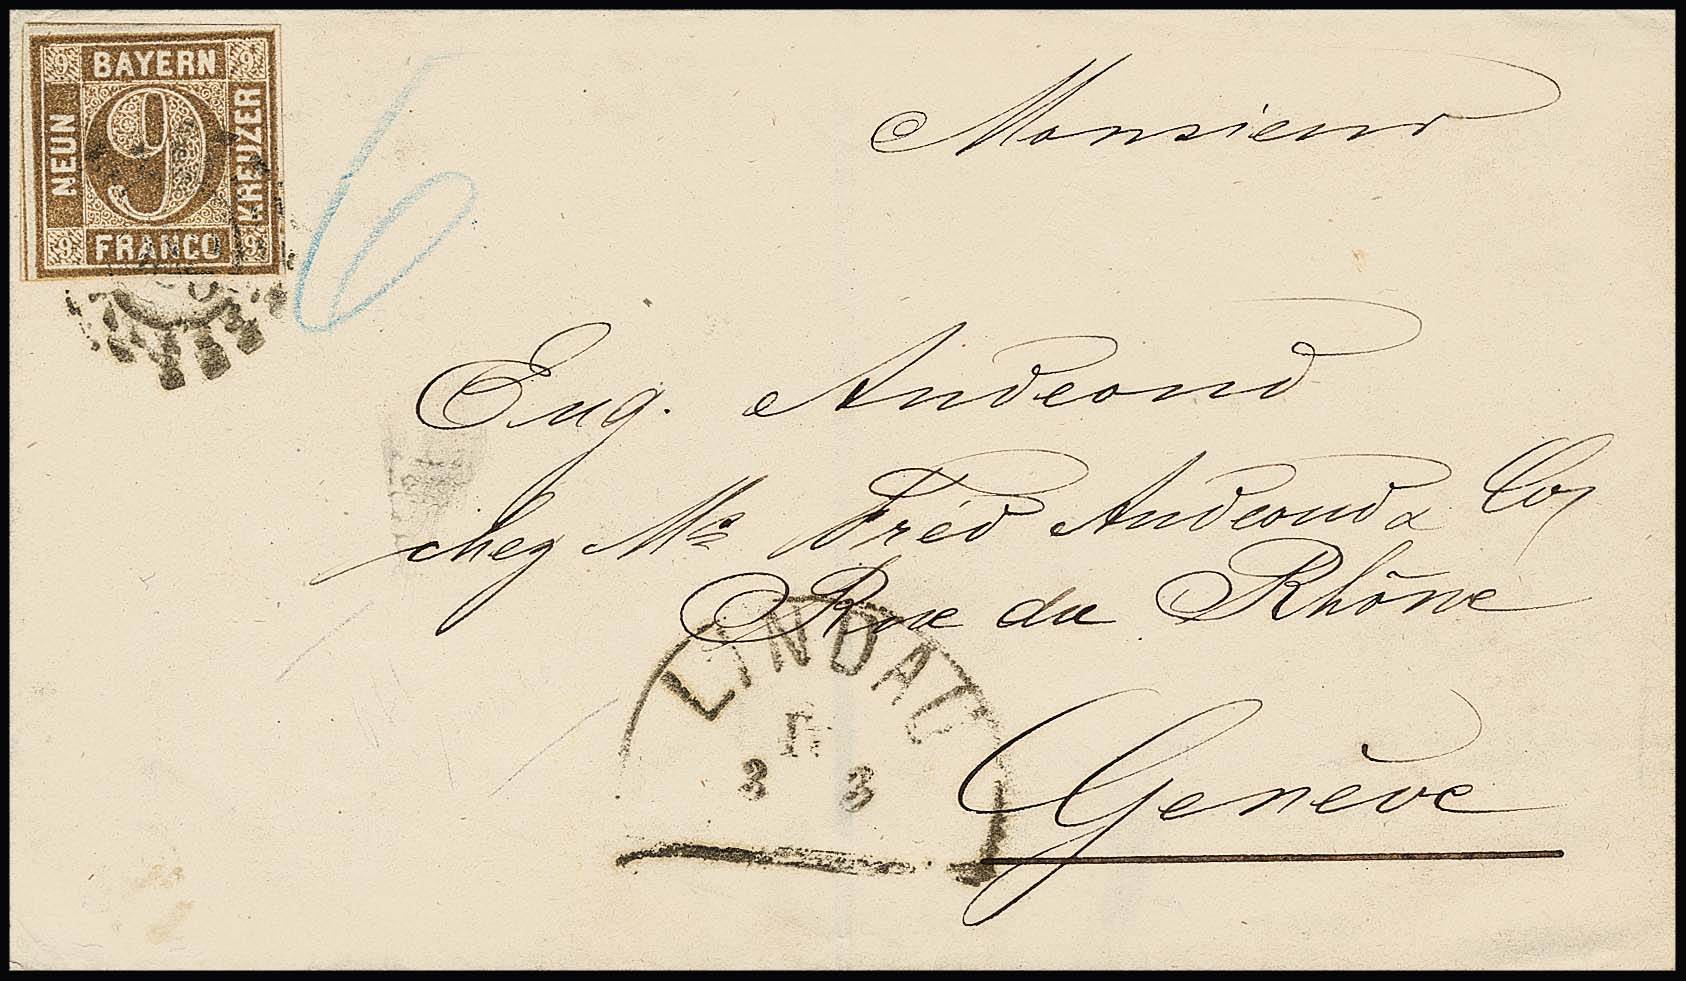 9 BAYERN 9
NEUN 9 KREUZER
9 FRANCO 9
6
Monsieur
Eug. Andeoud
chez Mrs Fréd Andeoud & Co,
Rue du Rhône
LINDAU
3 3
Genève